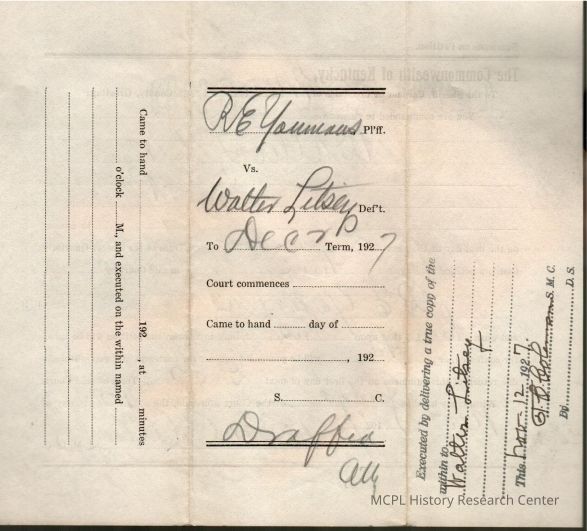 Came to hand 192 , at minutes
o'clock M., and executed on the within named
R E Youmans Pl'ff.
Vs.
Walter Litsey Def't.
To Decr Term, 1927
Court commences
Came to hand day of
, 192
S. C.
Atty
Executed by delivering a true copy of the
within to
Walter Litsey
This Nov-12-1927
S. M. C.
By D. S.
MCPL History Research Center